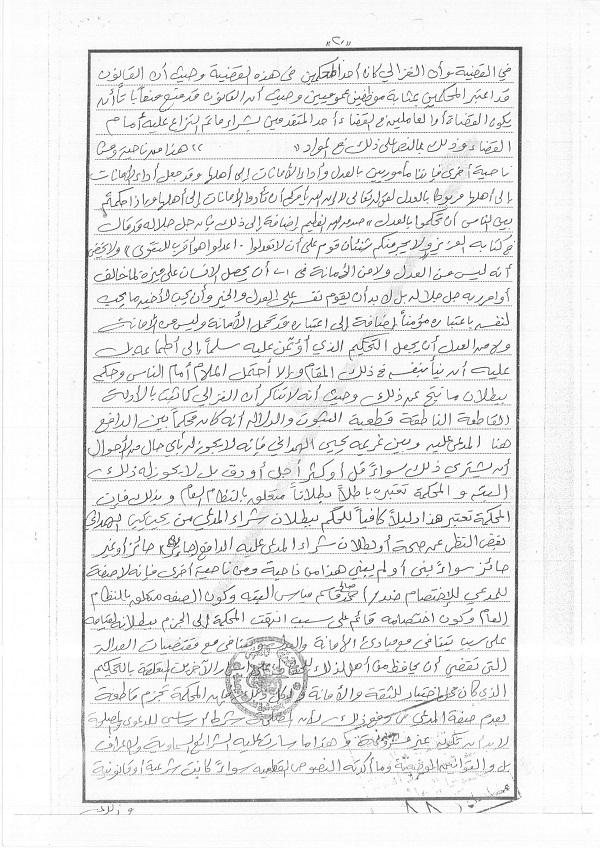 «٢٠»
في القضية وأن الغزالي كان أحد المحكمين في هذه القضية وحيث أن القانون
قد اعتبر المحكمين بمثابة موظفين عموميين وحيث أن القانون قد منع منعاً باتاً أن
يكون القضاة أو العاملين في القضاء أحد المتقدمين بشراء ما تم النزاع عليه أمام
القضاء وذلك بالنص على ذلك في المواد « » هذا من ناحية ومن
ناحية أخرى فإننا مأمورين بالعدل وأداء الأمانات إلى أهلها وقد جعل أداء الأمانات
إلى أهلها مربوطاً بالعدل لقوله تعالى إن الله يأمركم أن تأدوا الأمانات إلى أهلها وإذا حكمتم
بين الناس أن تحكموا بالعدل» صدق الله العظيم إضافة إلى ذلك فإنه جل جلاله قد قال
في كتابه العزيز ولا يجرمنكم شنئان قوم على أن لا تعدلوا. اعدلوا هو أقرب للتقوى» ولا
أنه ليس من العدل ولا من الأمانة في أن يحصل الإنسان على ميزة لمخالفة
أوامر ربه جل جلاله بل لا بد أن يقوم نفسه على العدل والخير وأن يحب لأخيه ما يحب
لنفسه باعتباره مؤمناً إضافة إلى اعتباره قد تحمل الأمانة وليس من الأمانة
ولا من العدل أن يجعل التحكيم الذي أؤتمن عليه سلماً إلى أطماعه بل
عليه أن ينأ بنفسه في ذلك المقام وإلا احتمل الملام أمام الناس وحكم
ببطلان ما نتج عن ذلك وحيث أنه لا تناكر أن الغزالي كما ثبت بالأدلة
القاطعة الناطقة قطعية الثبوت والدلالة أنه كان محكماً بين الدافع
هنا المدعى عليه وبين غريمه يحيى الهمداني فإنه لا يجوز له بأي حال من الأحوال
أن يشتري ذلك سواءً قل أو كثر أجل أو دق بل لا يجوز له ذلك
البته والمحكمة تعتبره باطلاً بطلاناً متعلق بالنظام العام وبذلك فإن
المحكمة تعتبر هذا دليلاً كافياً للحكم ببطلان شراء المدعي من يحيى الهمداني
بغض النظر عن صحة أو بطلان شراء المدعى عليه الدافع جائز أو غير
جائز سواءً بني أو لم يبني هذا من ناحية ومن ناحية أخرى فإنه لا صفة
للمدعي للإختصام ضد محمد صالح قاسم مياس البته وكون الصفه متعلقه بالنظام
العام وكون اختصامه قائم على سبب انتهت المحكمة إلى الجزم ببطلانه لقيامه
على سبب يتنافى مع مبادئ الأمانة والعدل ويتنافى مع مقتضيات العدالة
التي تقتضي أن يحافظ من أهل لذلك على أسرار الآخرين المتعلقة بالتحكيم
الذي كان محل اختيار للثقة والأمانة ولأجل ذلك فإن المحكمة تجزم قاطعة
بعدم صفة المدعي في ذلك لأن المصلحة شرط أساسي للدعوى والمصلحة
لا بد أن تكون غير وهذا ما سارت عليه الشرائع السماوية والأعراف
بل والقوانين الوضعية وما أكدته النصوص القطعيه سواءً كانت شرعية أو قانونية
وذلك